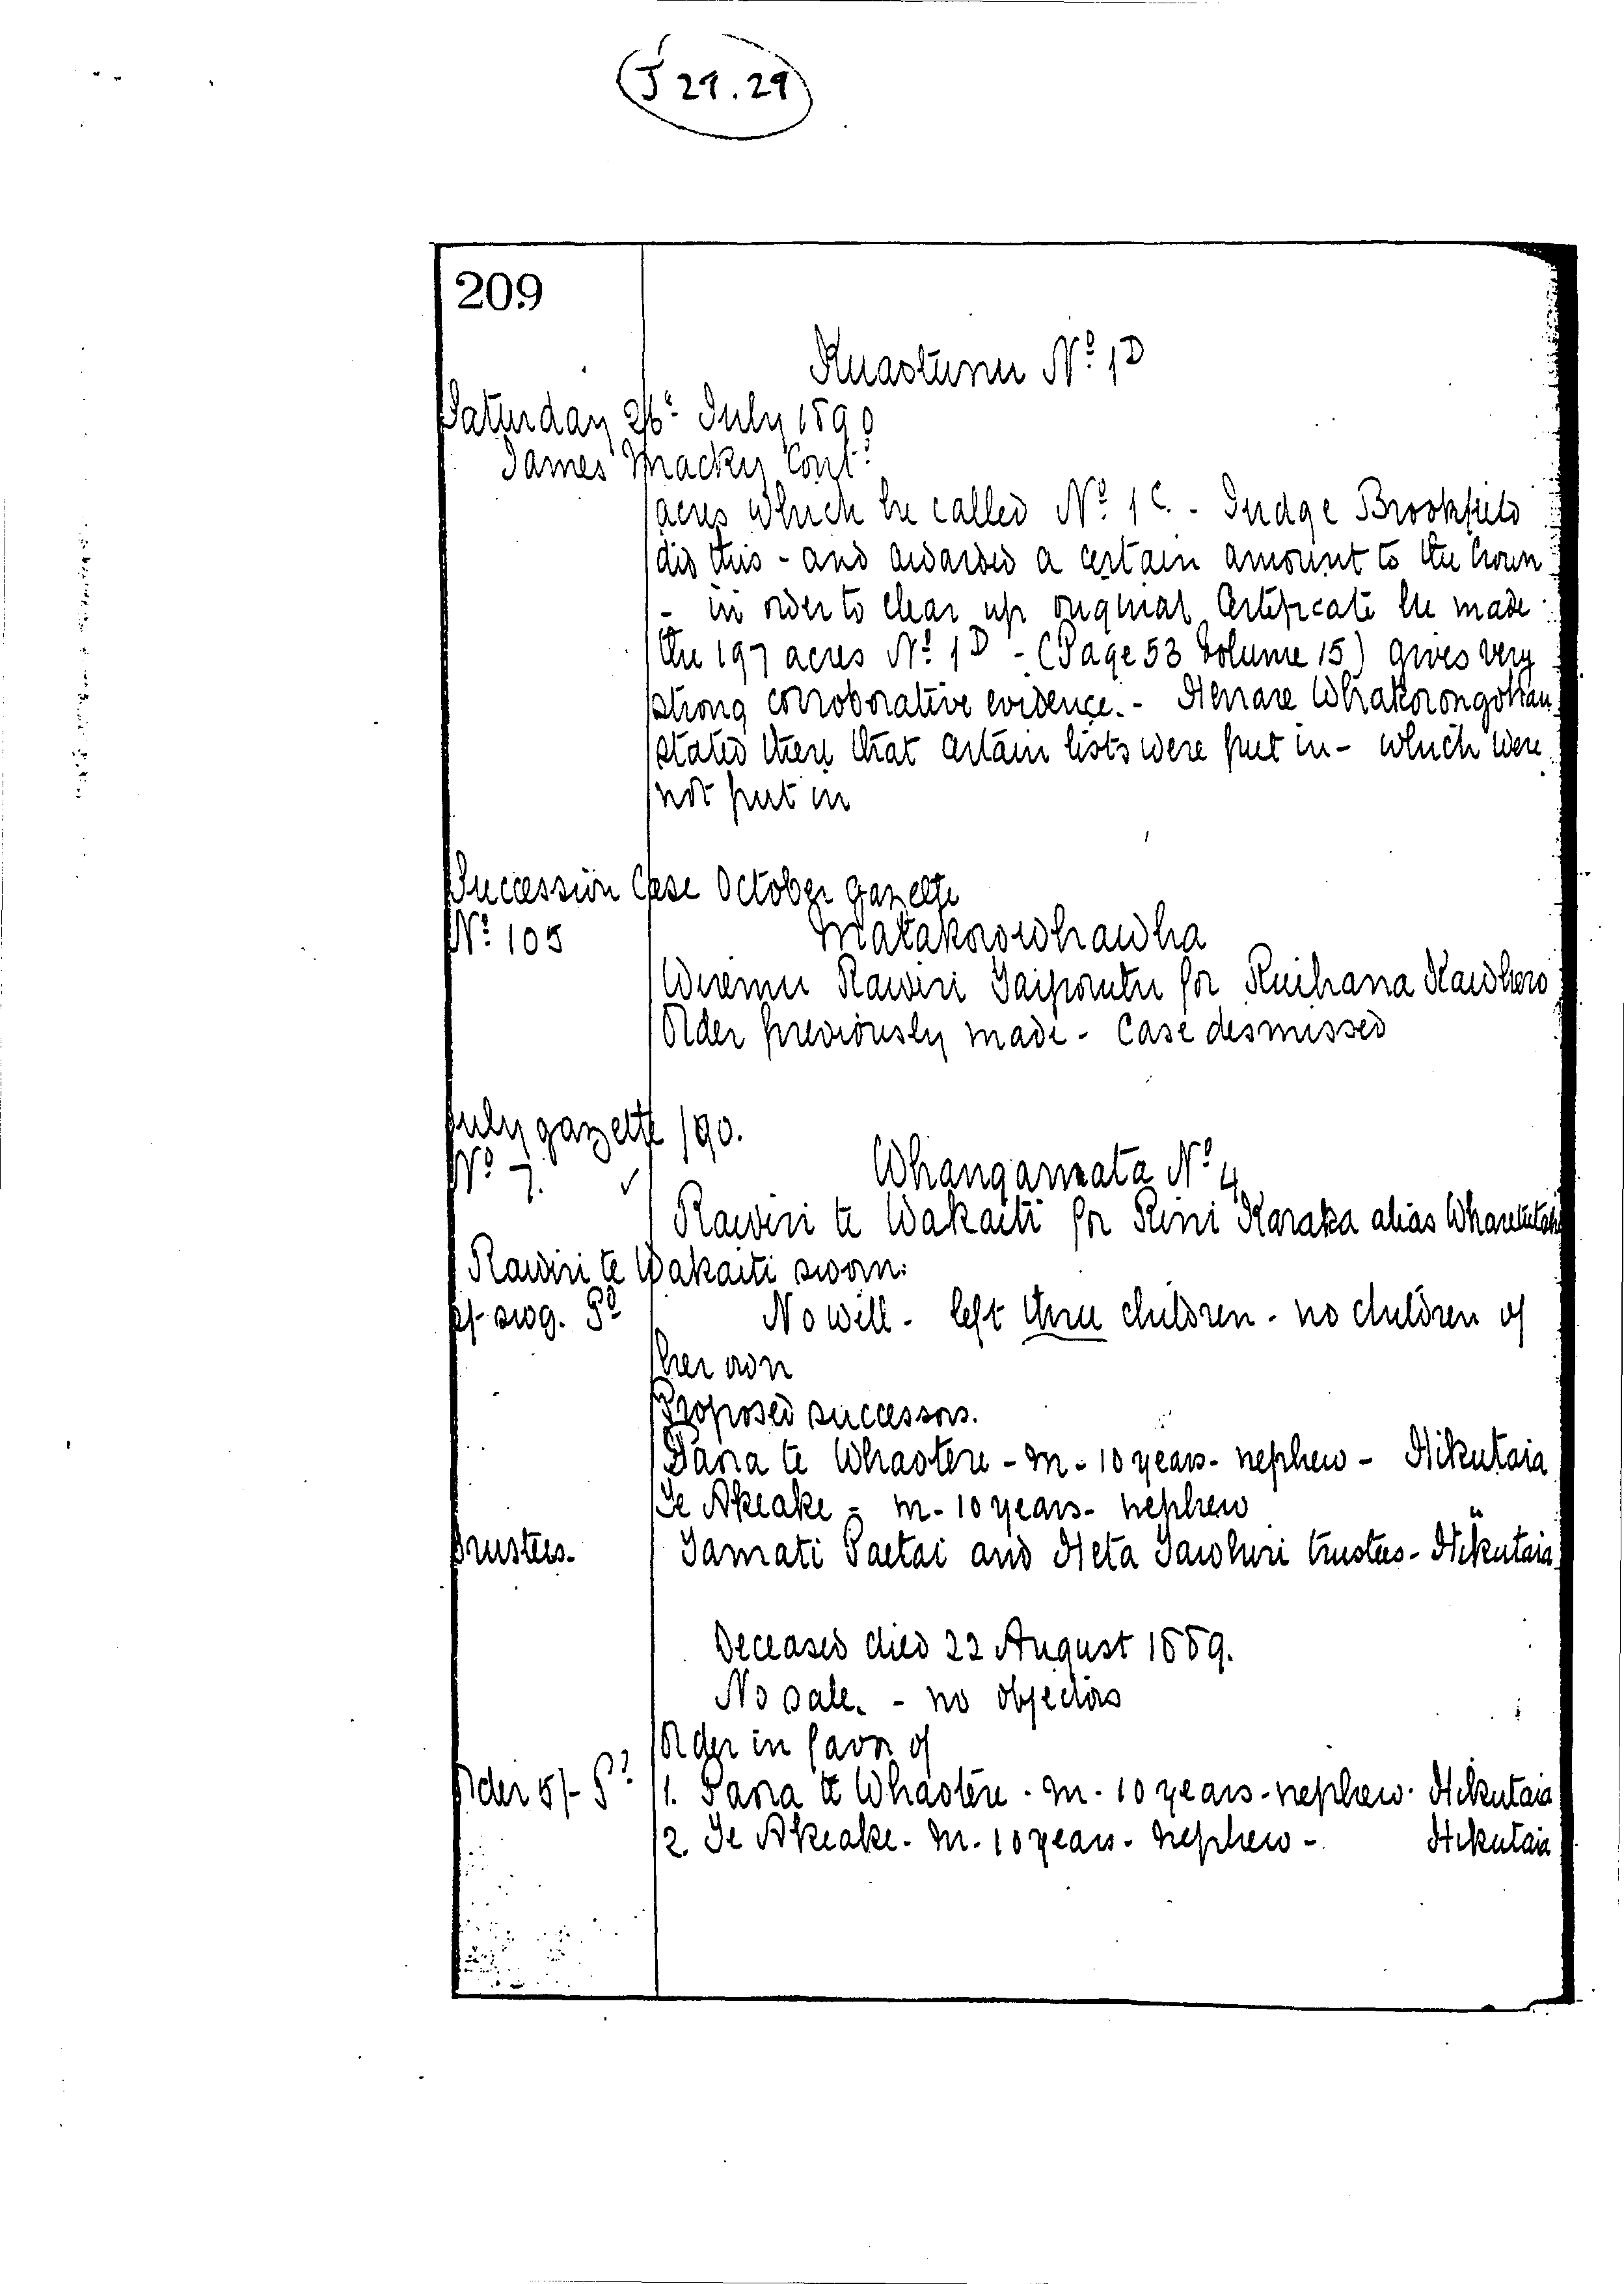 J 29.29
209
Kuaotunu No. 1D
Saturday 26th July 1890
James Macky Cont.
acres which he called No. 1C. - Judge Brookfield
did this - and awarded a certain amount to the Crown
- in order to clear up original Certificate he made
the 197 acres No. 1D - (Page 53 Volume 15) gives very
strong corroborative evidence. - Henare Whakarongohau
stated there that certain lists were put in - which were
not put in
Succession Case October gazette
No. 105
Matakorowhawha
Wiremu Rawiri Taiporutu for Ruihana Kawhero
Order previously made - Case desmissed
July gazette /90.
No. 7.
Whangamata No. 4
Rawiri te Wakaiti for Rini Karaka alias
Rawiri te Wakaiti sworn.
2/- swg. Pd
No will - left three children - no children of
her own
Proposed successors.
Pana te Whaotere - m - 10 years - nephew - Hikutaia
Te Akeake - m - 10 years - nephew "
Trustees.
Tamati Paetai and Heta Tawhiri trustees - Hikutaia
Deceased died 22 August 1889.
No sale. - no objectors
Order in favor of
Order 5/- Pd
1. Pana te Whaotere - m - 10 years - nephew - Hikutaia
2. Te Akeake - m - 10 years - nephew - Hikutaia